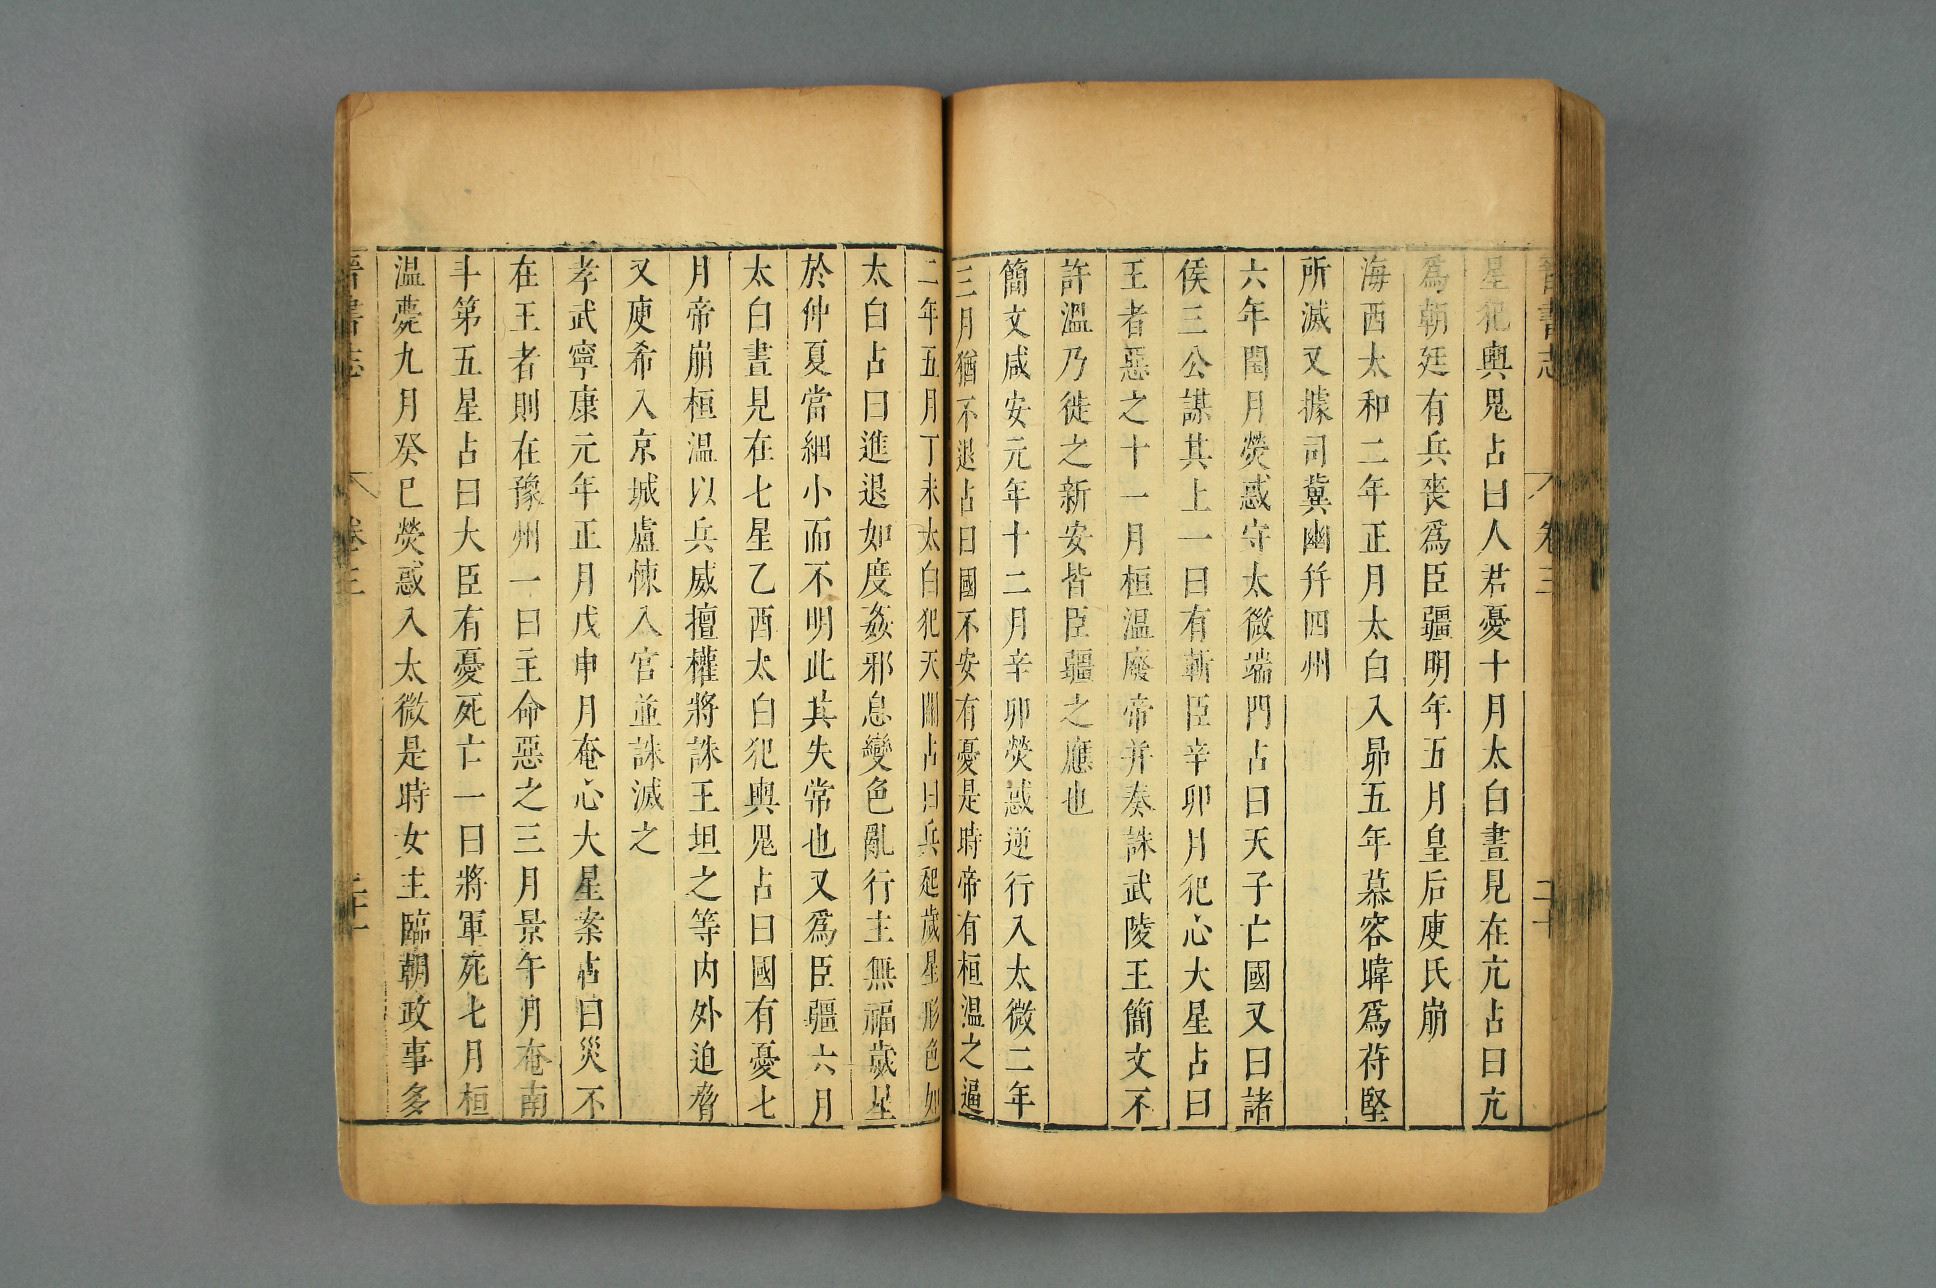 晉書志 卷三 二十
星犯輿鬼占曰人君憂十月太白晝見在亢占曰亢
爲朝廷有兵喪爲臣疆明年五月皇后庾氏崩
海西太和二年正月太白入昴五年慕容暐爲苻堅
所滅又據司冀幽幷四州
六年閏月熒惑守太微端門占曰天子亡國又曰諸
侯三公謀其上一曰有斬臣辛卯月犯心大星占曰
王者惡之十一月桓温廢帝幷奏誅武陵王簡文不
許溫乃徙之新安皆臣疆之應也
簡文咸安元年十二月辛卯熒惑逆行入太微二年
三月猶不退占曰國不安有憂是時帝有桓溫之逼
二年五月丁未太白犯天關占曰兵起歲星形色如
太白占曰進退如度姦邪息變色亂行主無福歲星
於仲夏當細小而不明此其失常也又爲臣疆六月
太白晝見在七星乙酉太白犯輿鬼占曰國有憂七
月帝崩桓温以兵威擅權將誅王坦之等内外迫脅
又庾希入京城盧悚入宫並誅滅之
孝武寧康元年正月戊申月奄心大星案占曰災不
在王者則在豫州一曰主命惡之三月景午月奄南
斗第五星占曰大臣有憂死亡一曰將軍死七月桓
温薨九月癸巳熒惑入太微是時女主臨朝政事多
晉書志 卷三 二十一